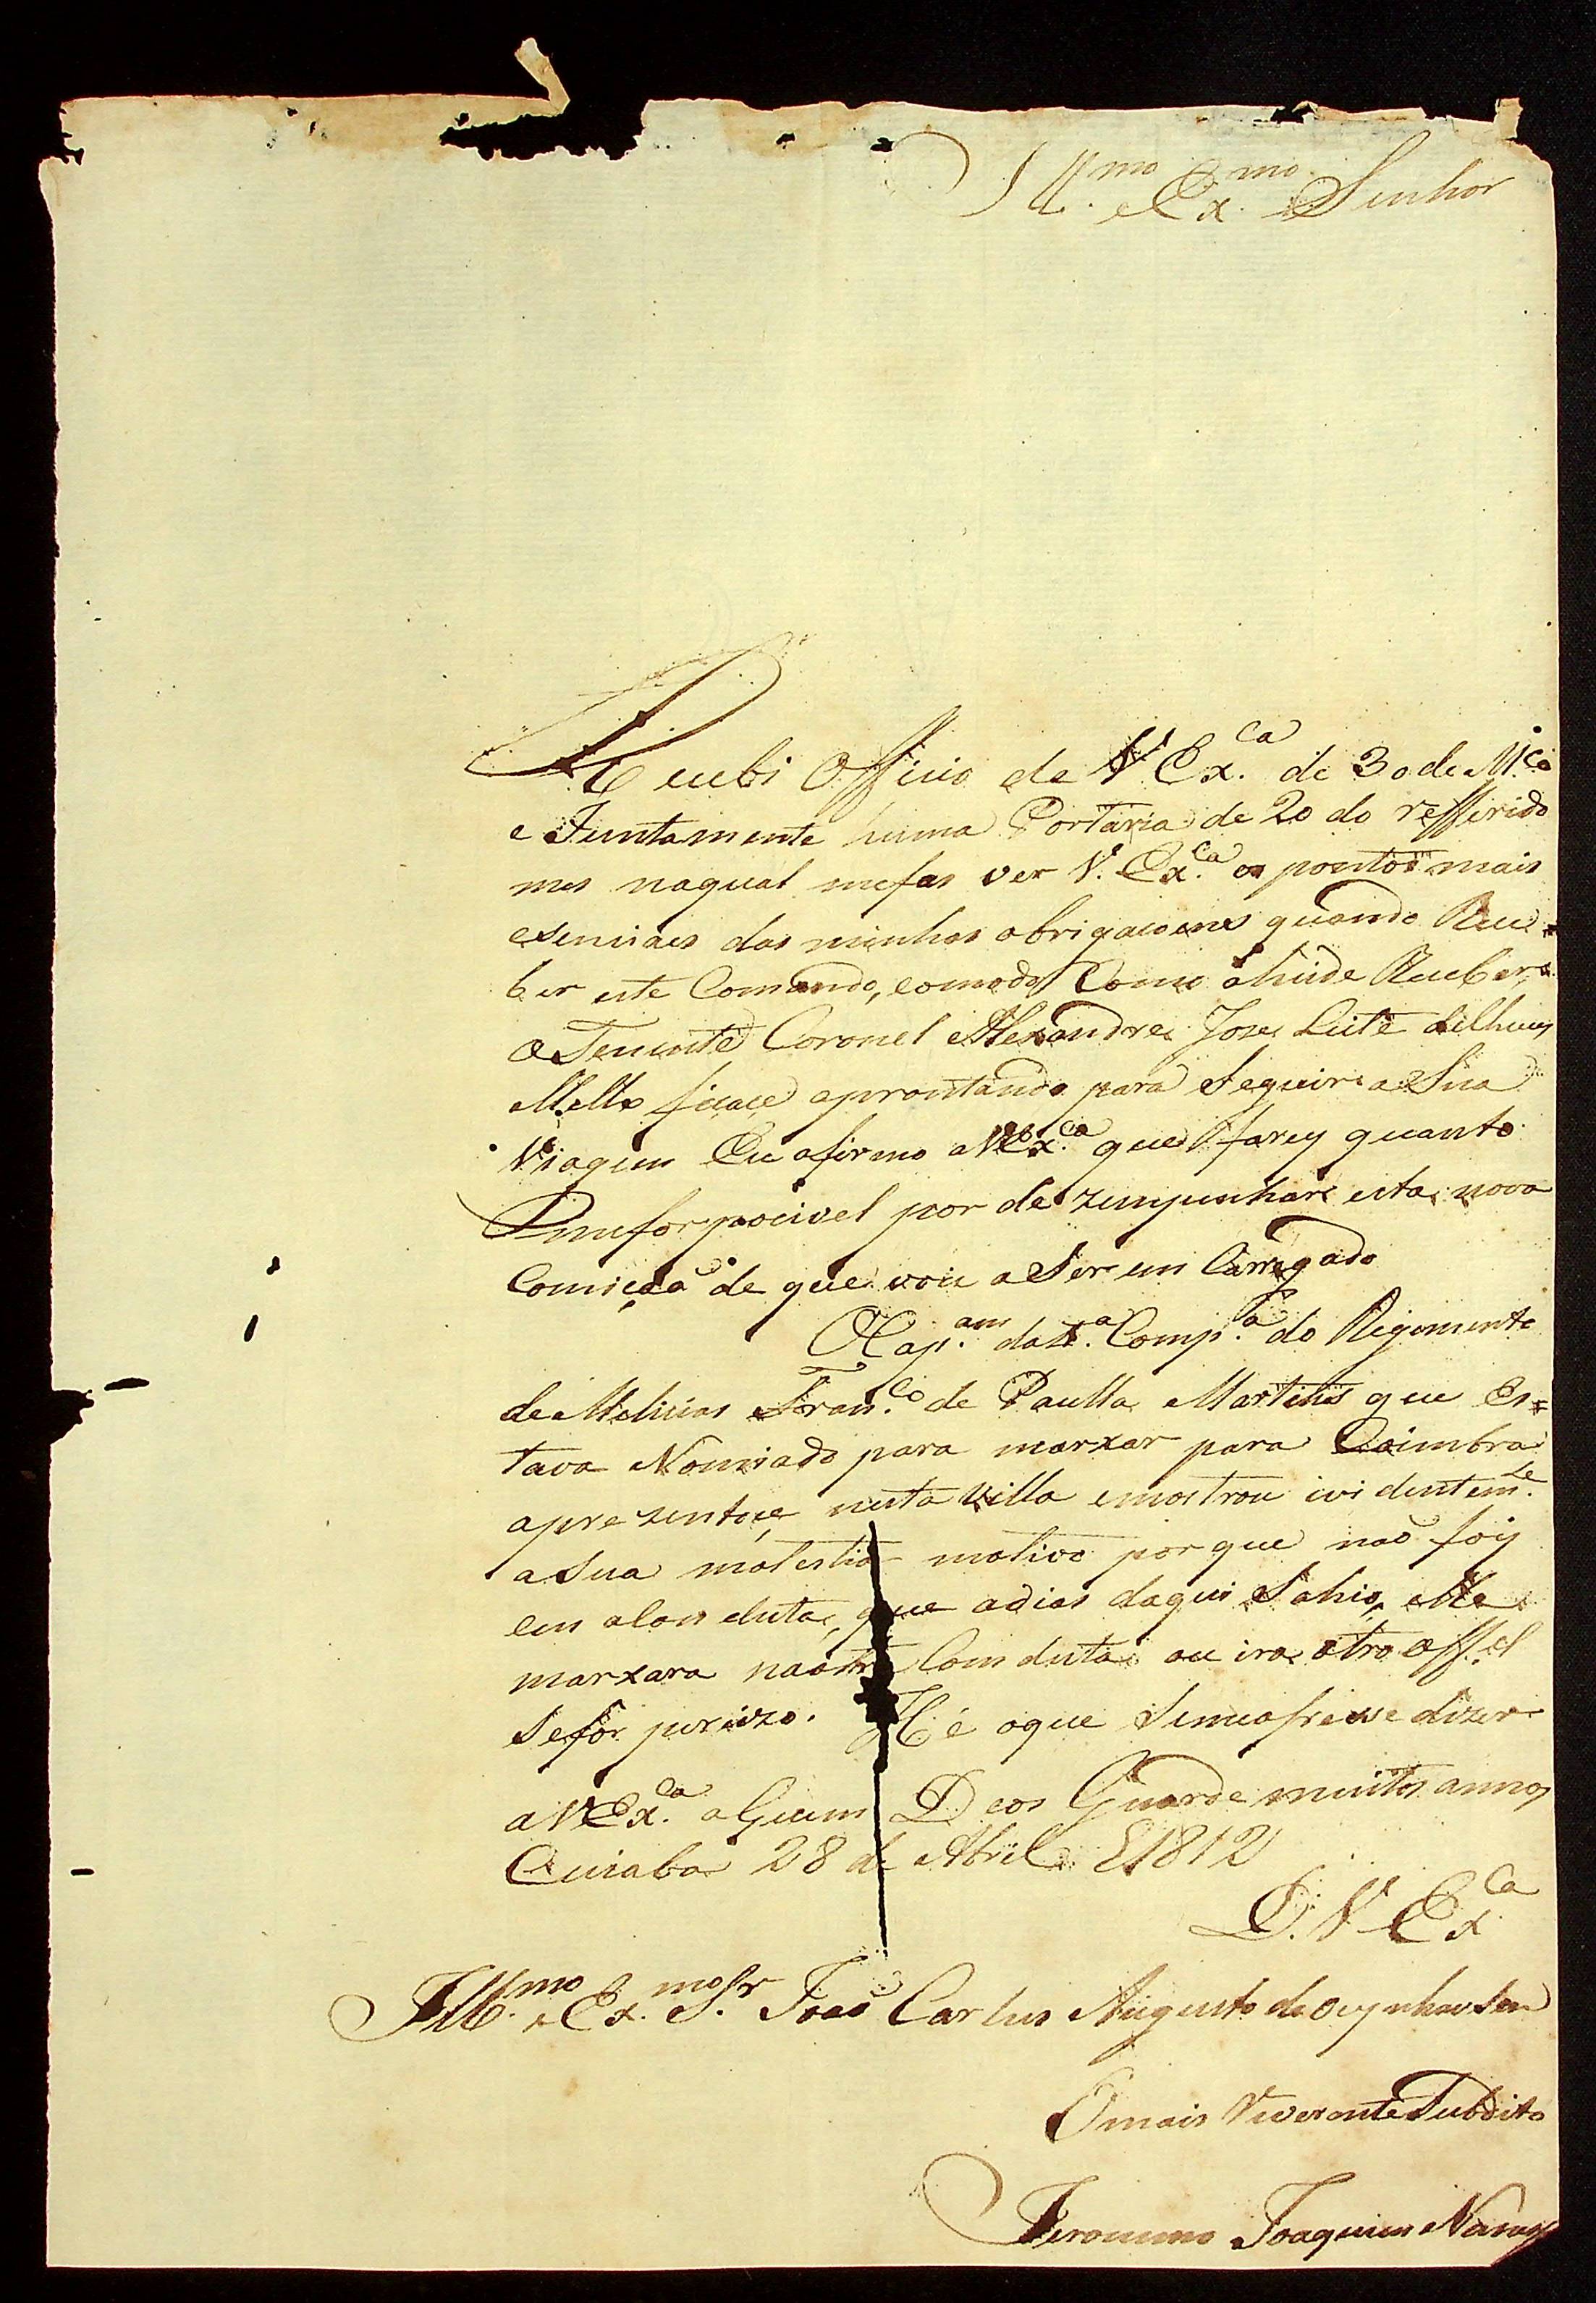 Ill.mo e Ex.mo Senhor
Recebi Officio de V Ex.ca de 30 de M.co
e Juntamente huma Portaria de 20 do refferido
mes naqual mefas ver V. Ex.ca os pontos mais
esenciais das minhas obrigacoens quando Rece=
ber este Comando, eomodo Como ahinde Receber,
O Tenente Coronel Alexandre Joze Leite
Mello ficace aprontando para Seguir a Sua
Viagem Eu afirmo a V Ex.ca que farey quanto
me for pocivel por dezempenhar esta nova
Comiçaõ de que vou a Ser em Carregado
O Cap.am da Comp.a do Regimento
de Melicias Fran.co de Paulla Martins que Es=
tava Nomiado para marxar para Coimbra
aprezentoçe nesta Villa emostrou ividentem.te
a Sua molestia motivo por que naõ foy
em a Conduta, que adias daqui Sahio, elle
marxara na Conduta ou ira otro Off.el
Sefor percizo. Hé oque Semeofresse dizer
a V Ex.ca a Quem Deos Guarde muitos annos
Cuiaba 28 de Abril 1812
D. V Ex.ca
Ill.mo e Ex.mo S.r Joaõ Carlos Augusto de Oeynhausen
O mais Reverente Subdito
Jeronimo Joaquim Nunes